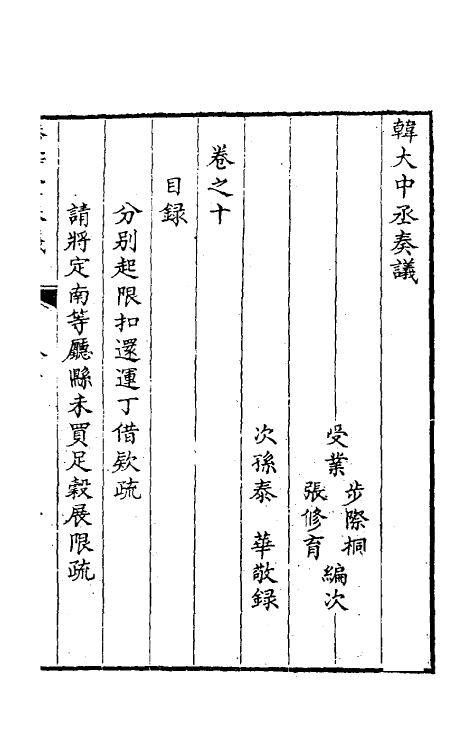 韓大中丞奏議
受業
步際桐
張修育
編次
次孫泰　華敬録
卷之十
目録
分別起限扣還運丁借欵疏
請將定南等廳縣未買足榖展限疏